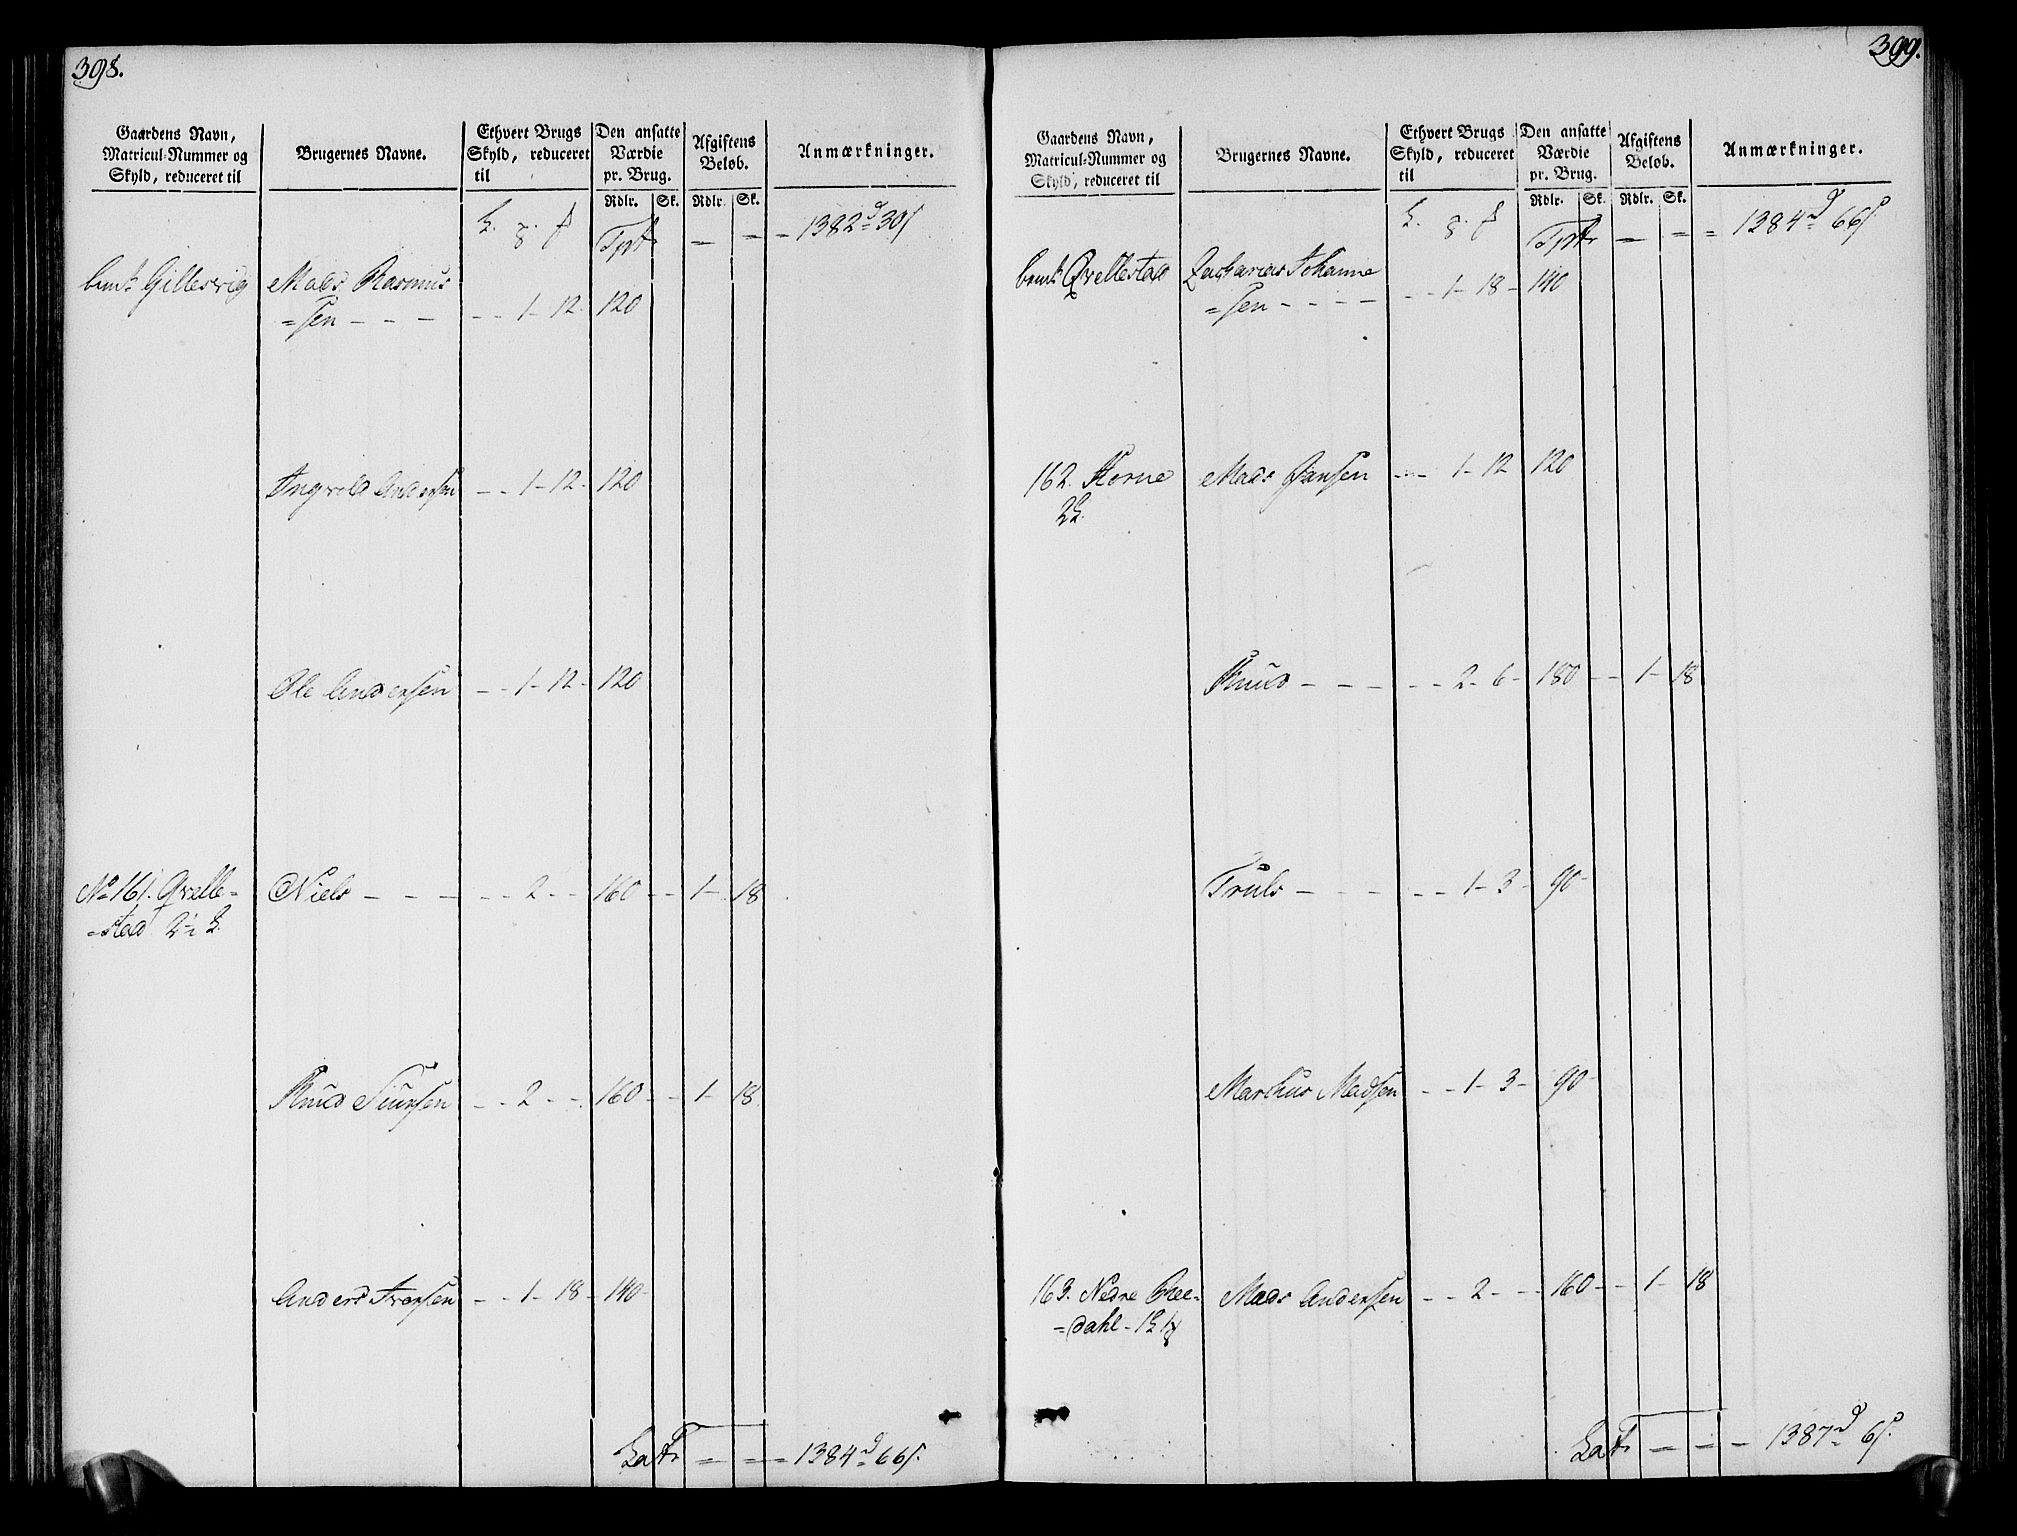 398.
Gaardens Navn,
Matricul-Nummer og
Skyld, reduceret til
Brugernes Navne.
Ethvert Brugs
Skyld, reduceret
til
Den ansatte
Værdie
pr. Brug.
Afgiftens
Beløb.
Anmærkninger.
Rdlr. Sk. Rdlr. Sk.
Tprt - - - 1382 30
Gillesvig Mads Rasmus
=sen - - - - - 1 - 12 - 120
Ingvold Andersen - - 1 - 12 - 120
Ole Andersen - - 1 - 12 - 120
No 161. Qvelle= Niels - - - - - 2 - - 160 - - 1 - 18
=stad 2½
Knud Siursen - - 2 - - 160 - - 1 - 18
Anders Iversen - - 1 - 18 - 140
Latr - - - 1384 66
399.
Gaardens Navn,
Matricul-Nummer og
Skyld, reduceret til
Brugernes Navne.
Ethvert Brugs
Skyld, reduceret
til
Den ansatte
Værdie
pr. Brug.
Afgiftens
Beløb.
Anmærkninger.
Rdlr. Sk. Rdlr. Sk.
Tprt - - - 1384 66
Qvellestad Zacharias Johanne
=sen - - - - - - 1 - 18 - 140
162. Horne Mads Hansen - - 1 - 12 120
2
Knud - - - - - 2 - 6 - 180 - - 1 - 18
Truls - - - - - 1 - 3 - 90
Marthus Madsen - - 1 - 3 - 90
163. Nedre Ree= Mads Andersen - - 2 - - 160 - - 1 - 18
=dahl - 1
Latr - - - 1387 6